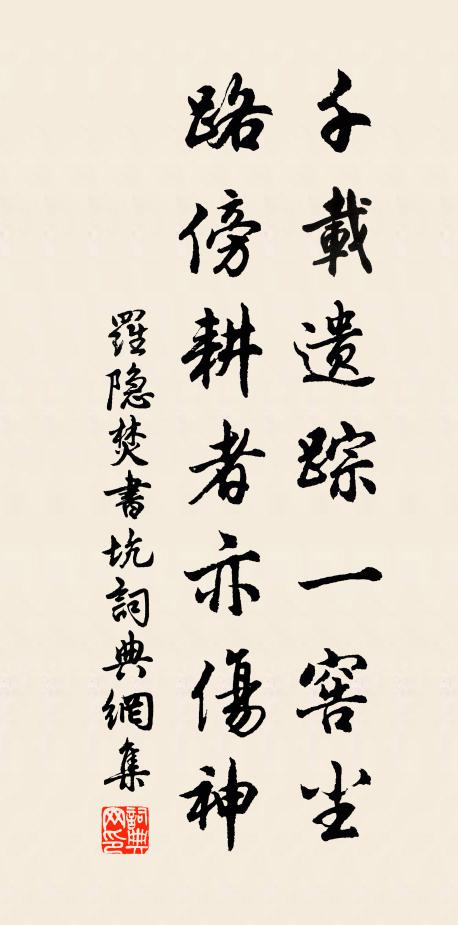 千載遗踪一窖尘
路傍耕者亦傷神
羅隐焚書坑詞典網集
詞典网印